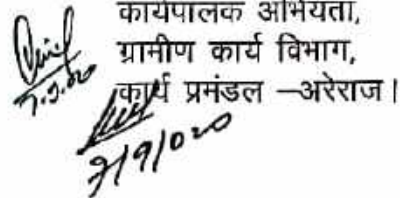 कार्यपालक अभियंता,
ग्रामीण कार्य विभाग,
कार्य प्रमंडल –अरेराज।
7.9.20
7/9/020